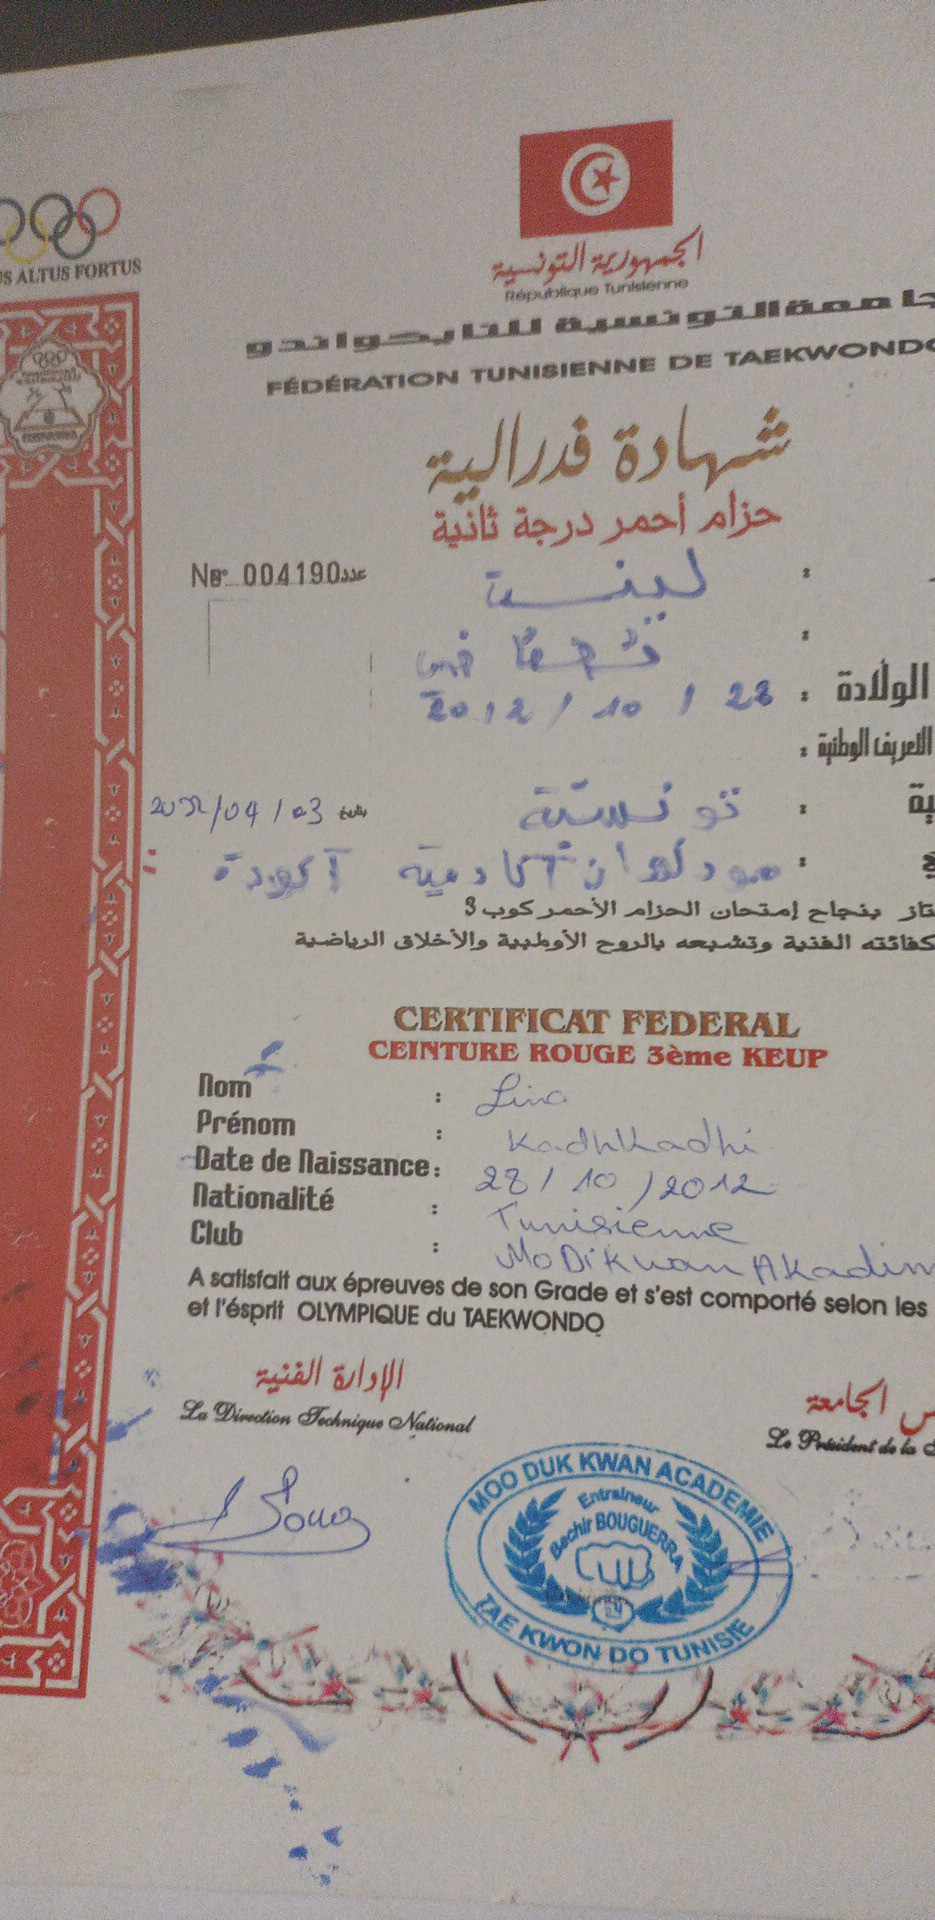 US ALTUS FORTUS
الجمهورية التونسية
République Tunisienne
جامعة التونسية للتايكواندو
FÉDÉRATION TUNISIENNE DE TAEKWONDO
شهادة فدرالية
حزام أحمر درجة ثانية
No 004190 عدد
لينة
الولادة : 28 / 10 / 2012
التعريف الوطنية :
ية : تونسية بتاريخ 03 / 04 /
أكادمية أكودة
تاز بنجاح إمتحان الحزام الأحمر كوب 3
كفائته الفنية وتشبعه بالروح الأولمبية والأخلاق الرياضية
CERTIFICAT FEDERAL
CEINTURE ROUGE 3ème KEUP
Nom : Lina
Prénom : Kadhkadhi
Date de Naissance : 28 / 10 / 2012
Nationalité : Tunisienne
Club : MoDikwan Akadim
A satisfait aux épreuves de son Grade et s'est comporté selon les
et l'ésprit OLYMPIQUE du TAEKWONDO
الإدارة الفنية
La Direction Technique National
س الجامعة
Le Président de la
MOO DUK KWAN ACADEMIE
Entraineur
Bechir BOUGUERRA
TAE KWON DO TUNISIE